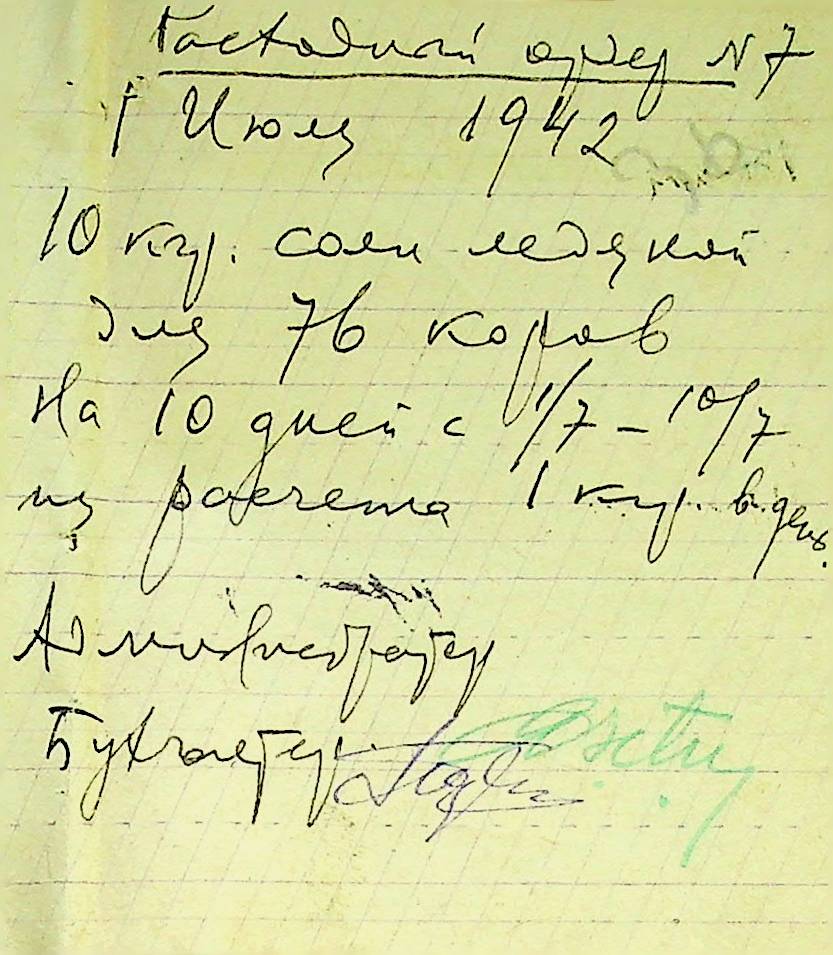 Расходный ордер N 7
1 Июля 1942
10 кгр. соли
для 76 коров
На 10 дней с 1/7 – 10/7
из расчета 1 кгр. в день.
Администратор
Бухгалтер